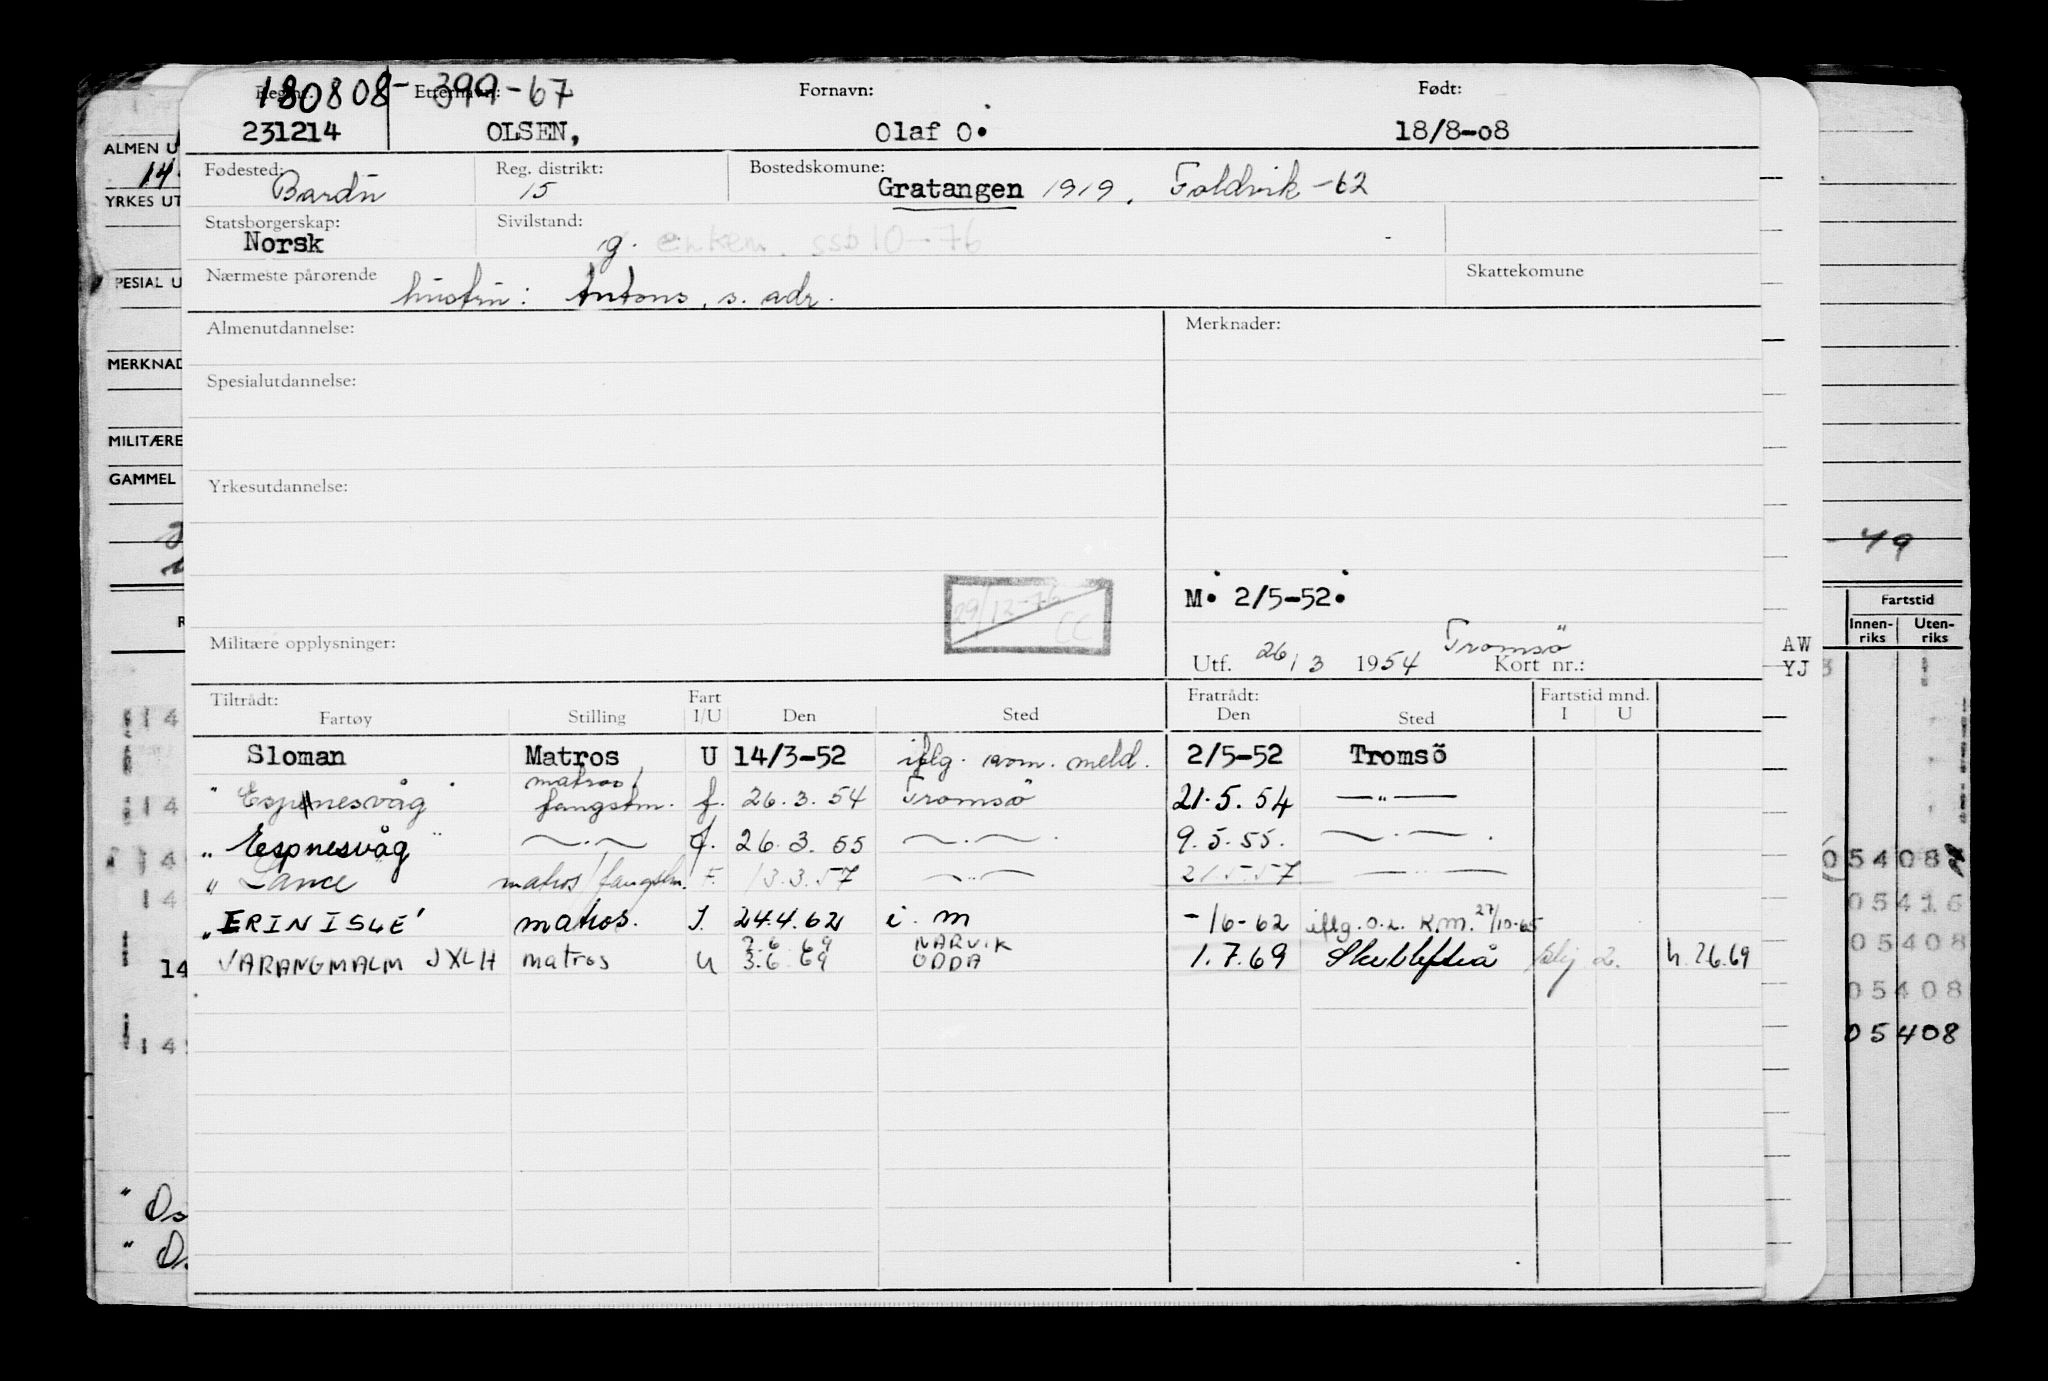 180808-399-67
Reg.nr. Etternavn: Fornavn: Født:
231214 OLSEN, Olaf O. 18/8-08
Fødested: Reg. distrikt: Bostedskomune:
Bardu 15 Gratangen 1919. Foldvik -62
Statsborgerskap: Sivilstand:
Norsk g. enkem. ssb 10-76
Nærmeste pårørende Skattekomune
hustru: Antons, s. adr.
Almenutdannelse: Merknader:
Spesialutdannelse:
Yrkesutdannelse:
29/12-76 CC
M. 2/5-52.
Militære opplysninger:
Utf. 26/3 1954 Tromsö Kort nr.:
Tiltrådt: Fart Fratrådt: Fartstid mnd.
Fartøy Stilling I/U Den Sted Den Sted I U
Sloman Matros U 14/3-52 iflg. meld. 2/5-52 Tromsö
" Espenesvåg " matros/ fangstm. f. 26.3.54 Tromsö 21.5.54 —"—
" Espnesvåg " —"— f. 26.3.55 —"— 9.5.55. —"—
" Lance " matros/fangstm. F. 13.3.57 —"— 21.5.57 —"—
"ERIN ISLE' matros. I. 24.4.62 i. m -16-62 iflg. o.l. R.m. 27/10-65
VARANGMALM JXLH matros U 2.6.69 3.6.69 NARVIK ODDA 1.7.69 Skellefteå 2. h.26.69
ALMEN U
14
YRKES UT
PESIAL U
MERKNAD
MILITÆRE
GAMMEL
-49
Fartstid
Innen-riks Uten-riks
AW
YJ
14
14
14
14
14
14
05408
05416
05408
05408
05408
" Os
" Os